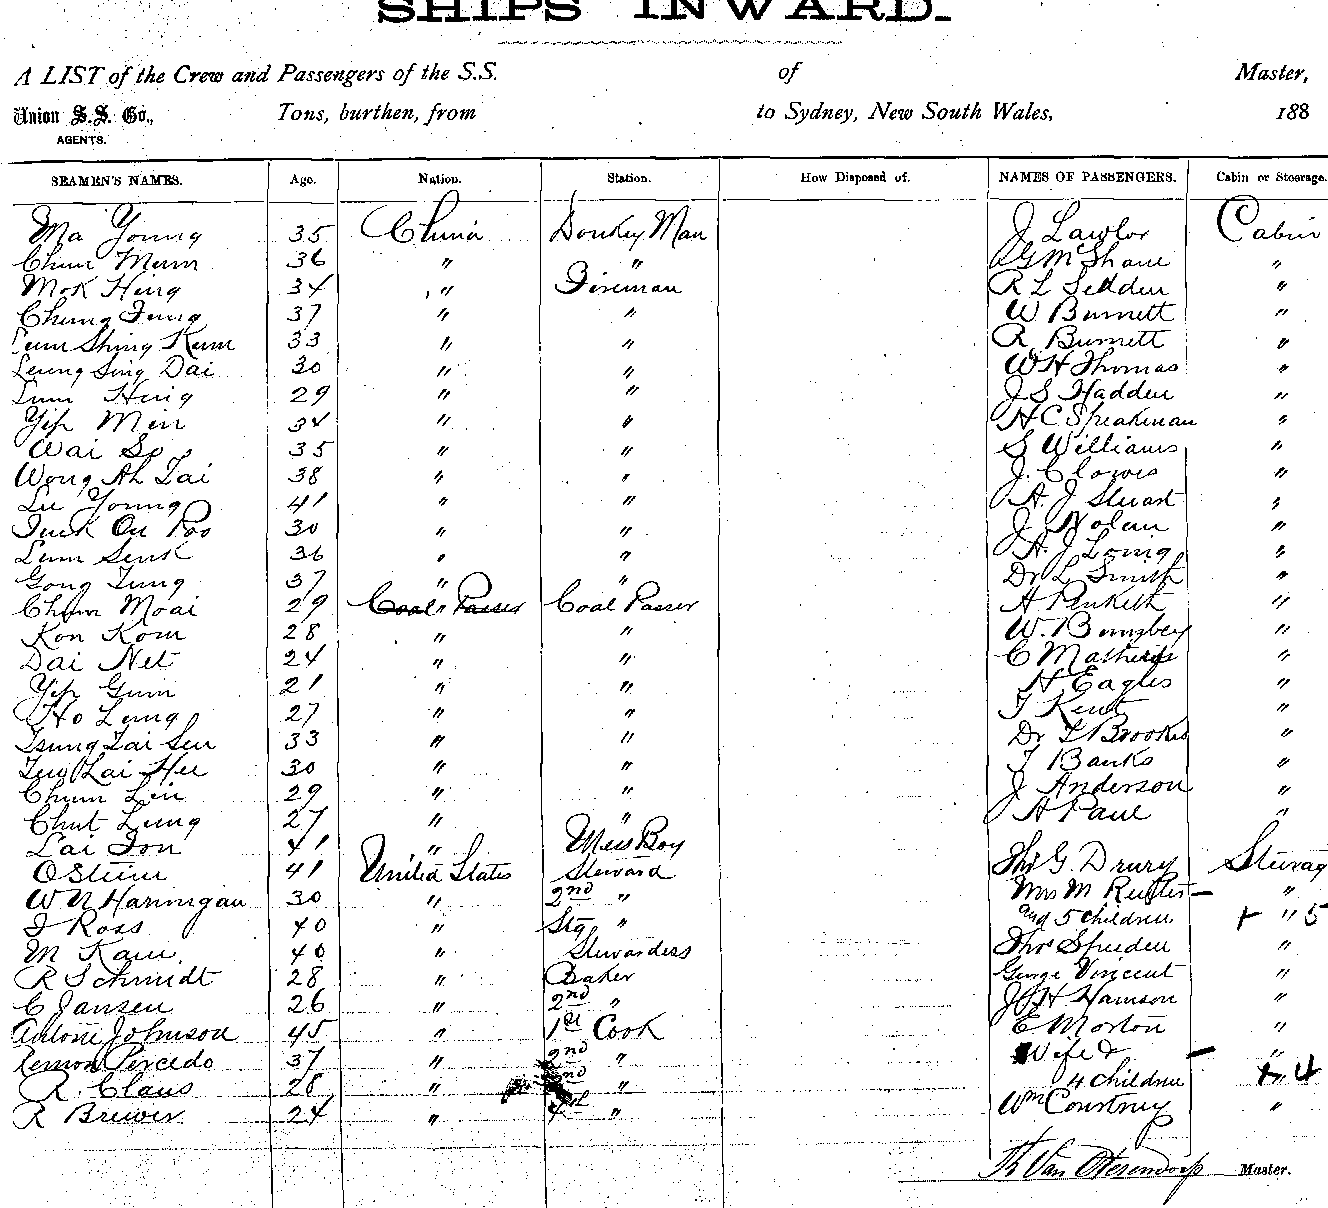 SHIPS INWARD.
A LIST of the Crew and Passengers of the S.S. of Master,
Union S.S. Co., Tons, burthen, from to Sydney, New South Wales, 188
AGENTS.
SEAMEN'S NAMES. Age. Nation. Station. How Disposed of. NAMES OF PASSENGERS. Cabin or Steerage.
Ma Young 35 China Donkey Man J Lawlor Cabin
Chun Mum 36 " " G McShane "
Mok Hing 34 " Fireman R L Sedden "
Chung Fung 37 " " W Burnett "
Lum Shing Kum 33 " " R Burnett "
Leung Sing Dai 30 " " W H Thomas "
Lum Hing 29 " " J S Hadden "
Yip Min 34 " " H C Speakman "
Wai So 35 " " S Williams "
Wong Ah Tai 38 " " J. Clowes "
Lu Young 41 " " A. J Stuart "
Tuck On Poo 30 " " J Nolan "
Lum 36 " " A. J Loring "
Gong Tung 37 " " Dr L Smith "
Chum Moai 29 Coal Passer Coal Passer A Penketh "
Kon Kom 28 " " W. "
Dai Net 24 " " C "
Yip Gum 21 " " H Eagles "
Ho Leung 27 " " T Kent "
Tsung Tai Sen 33 " " Dr T Brookes "
Lai Hee 30 " " T Banks "
Chum Lin 29 " " J Anderson "
Chut Lung 27 " " A Paul "
Lai Jon 41 " Mess Boy
O Steim 41 United States Steward Thos G. Drury Steerag
W N Hannigan 30 " 2nd " Mrs M "
J Ross 40 " Stg " and 5 children + " 5
M Kane 40 " Stewardess Thos Speeden "
R Schmidt 28 " Baker George Vincent "
C Jansen 26 " 2nd " J H Hanson "
Antone Johnson 45 " 1st Cook E Morton "
Remon Percedo 37 " 2nd " Wife & "
R Claus 28 " " 4 children + " 4
R Brewer 24 " 4th " Wm Courtney "
Master.